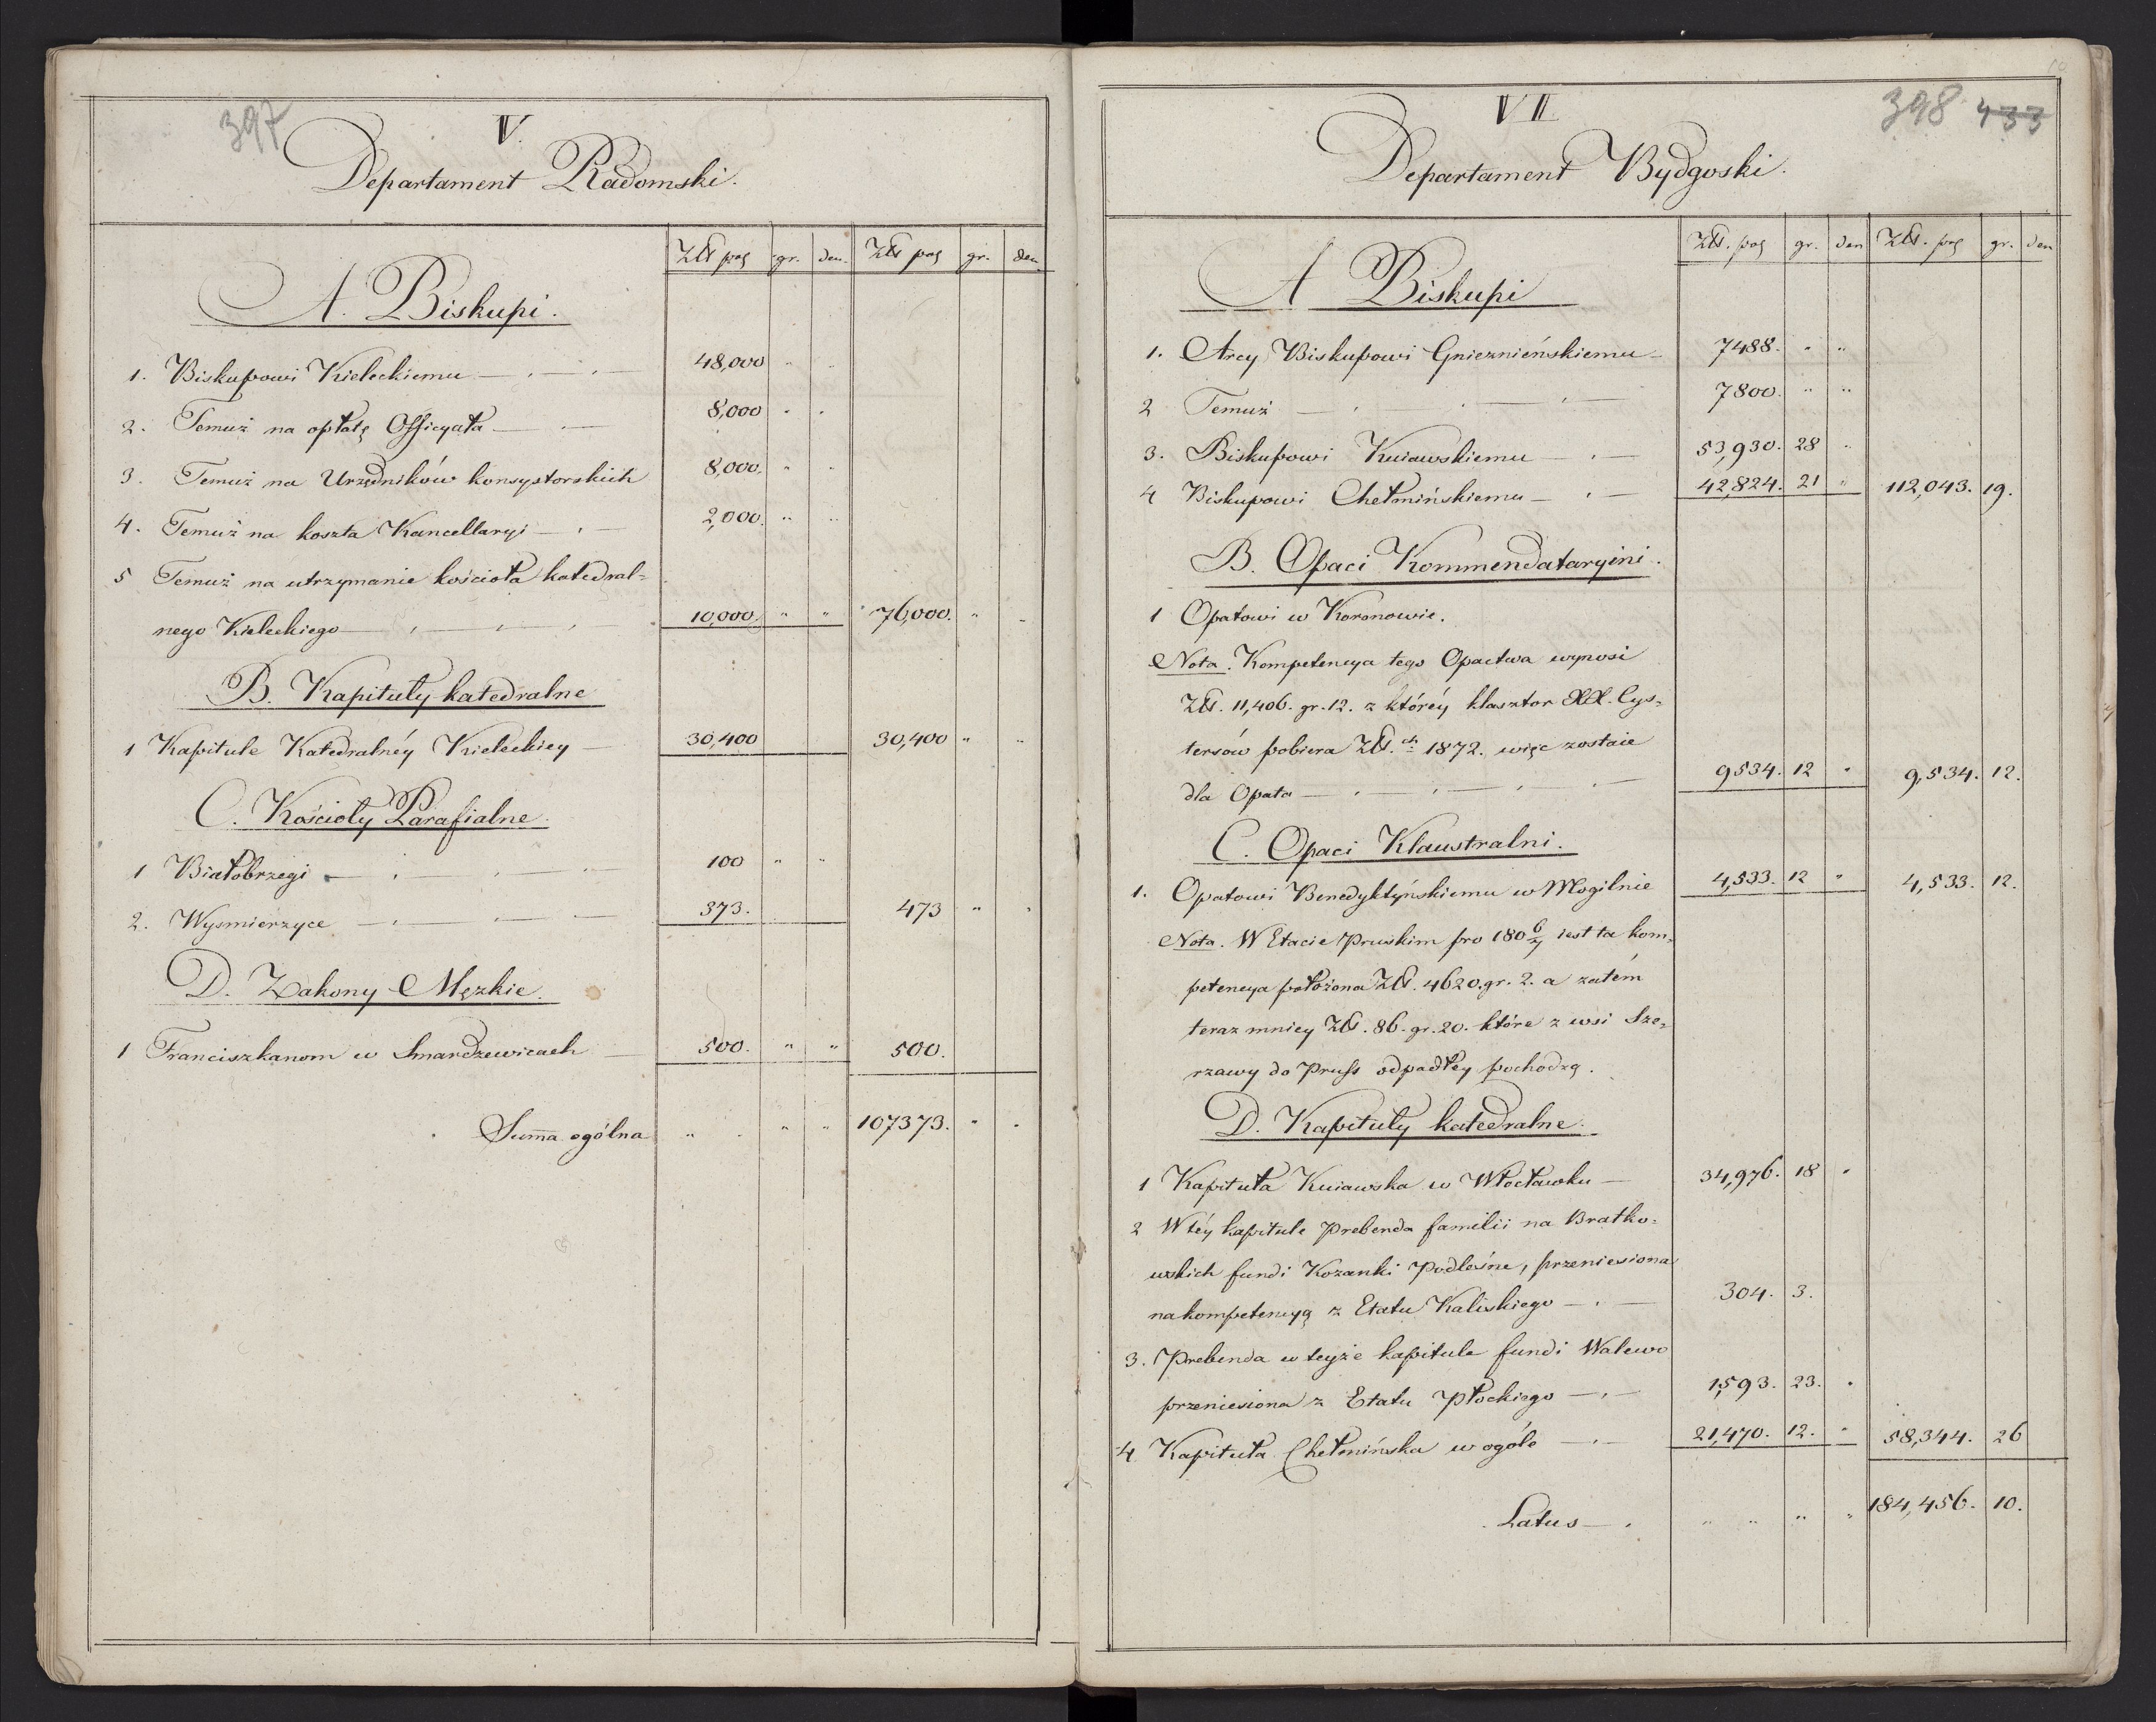 397
V.
Departament Radomski.
Złł pol gr. den. Złł pol gr. den.
A. Biskupi.
1. Biskupowi Kieleckiemu 48,000 " "
2. Temuż na opłatę Officyała 8,000 " "
3. Temuż na Urzędników konsystorskich 8,000. " "
4. Temuż na koszta Kancellaryi 2,000. " "
5 Temuż na utrzymanie kościoła katedral=
nego Kieleckiego 10,000. " " 76,000. " "
B. Kapituły katedralne
1 Kapitule Katedralnéy Kieleckiey 30,400 30,400 " "
C. Kościoły Parafialne.
1 Białobrzegi 100 " "
2. Wyśmierzyce 373. 473 " "
D. Zakony Męzkie.
1 Franciszkanom w Smardzewicach 500. " " 500.
Summa ogólna " " " " 107373. " "
398 433
VII
Departament Bydgoski.
Złł. pol gr. den Złł. pol gr. den
A Biskupi
1. Arcy Biskupowi Gnieznieńskiemu 7488. " "
2 Temuż 7800. " "
3. Biskupowi Kuiawskiemu 53,930. 28 "
4 Biskupowi Chełmińskiemu 42,824. 21 " 112,043. 19.
B. Opaci Kommendataryini.
1 Opatowi w Koronowie.
Nota. Kompetencya tego Opactwa wynosi
Złł. 11,406. gr. 12. z któréy klasztor XX. Cys=
tersów pobiera Złł.ch 1872. więc zostaie
dla Opata 9534. 12 " 9,534. 12.
C. Opaci Klaustralni.
1. Opatowi Benedyktyńskiemu w Mogilnie 4,533. 12 " 4,533. 12.
Nota. W Etacie Pruskim pro 180 6/7 iest ta kom=
petencya położona Złł. 4620. gr. 2. a zatém
teraz mniey Złł. 86. gr. 20. które z wsi Sze=
rzawy do Pruss odpadłey pochodzą.
D. Kapituły katedralne.
1 Kapituła Kuiawska w Włocławku 34,976. 18 "
2 W téy kapitule Prebenda familii na Bratko=
wskich fundi Kozanki Podleśne, przeniesiona
na kompetencyą z Etatu Kaliskiego 304. 3.
3. Prebenda w teyże kapitule fundi Walewo
przeniesiona z Etatu Płockiego 1,593. 23. "
4 Kapituła Chełmińska w ogóle 21,470. 12. " 58,344. 26
Latus " " " " 184,456. 10.